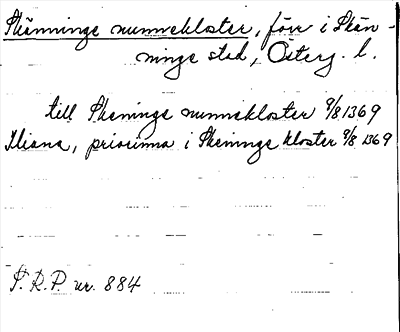 Skänninge nunnekloster, förr i Skän-
ninge stad, Österg. l.
till Skeninge nunnekloster 9/8 1369
Iliana, priorinna i Skeninge kloster 9/8 1369
S.R.P. nr. 884